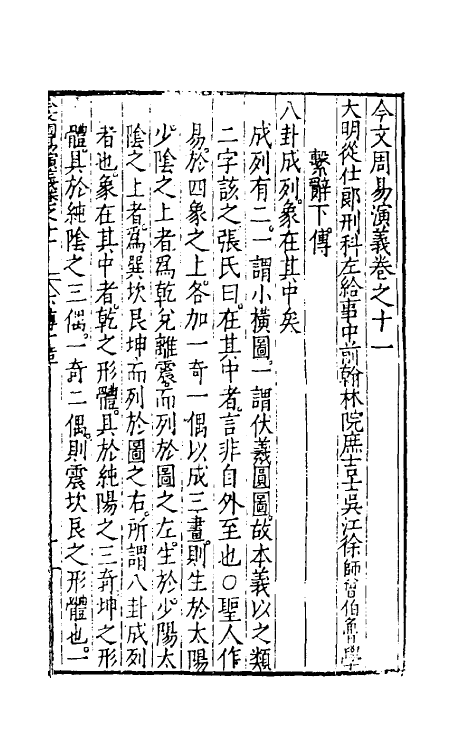 今文周易演義卷之十一
大明從仕郎刑科左給事中前翰林院庶吉士吳江徐師曾伯魯學
繫辭下傳
八卦成列。象在其中矣
成列有二。一謂小橫圖。一謂伏羲圓圖。故本義以之類
二字該之張氏曰。在其中者。言非自外至也○聖人作
易於四象之上。各加一奇一偶以成三畫。則生於太陽
少陰之上者爲乾兌離震。而列於圖之左。生於少陽太
陰之上者。爲巽坎艮坤而列於圖之右。所謂八卦成列
者也。象在其中者。乾之形體。具於純陽之三奇坤之形
體。具於純陰之三偶。一奇二偶。則震坎艮之形體也。一